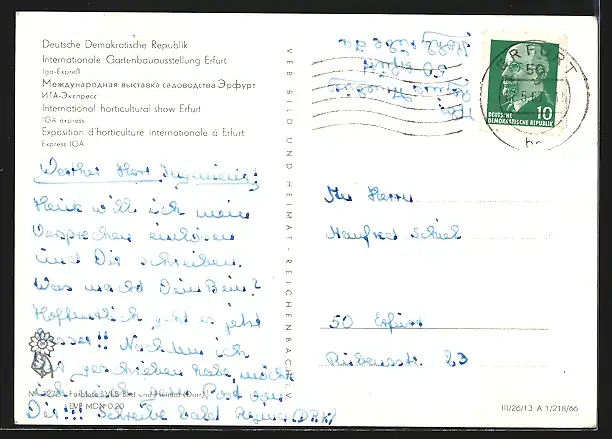 Deutsche Demokratische Republik
Internationale Gartenbauausstellung Erfurt
Iga-Expreß
Международная выставка садоводства Эрфурт
ИГА-Экспресс
International horticultural show Erfurt
IGA express
Exposition d'horticulture internationale à Erfurt
Express IGA
Werther Herr Ingenieur!
Heute will ich mein
Versprechen einlösen
und Dir schreiben.
Was macht Dein Bein?
Hoffentlich geht es jetzt
besser!! Nachdem ich
Dir geschrieben habe, möchte
ich Post von
Dir!!! Schreibe bald Regina
Nr. Farbfoto: VEB Bild und Heimat (Darr)
EVP MDN 0,20
VEB BILD UND HEIMAT REICHENBACH I. V.
50 Erfurt
ERFURT
50
10
DEUTSCHE
DEMOKRATISCHE REPUBLIK
Herrn
Manfred
50 Erfurt
Rubensstr. 23
III/26/13 A 1/218/66